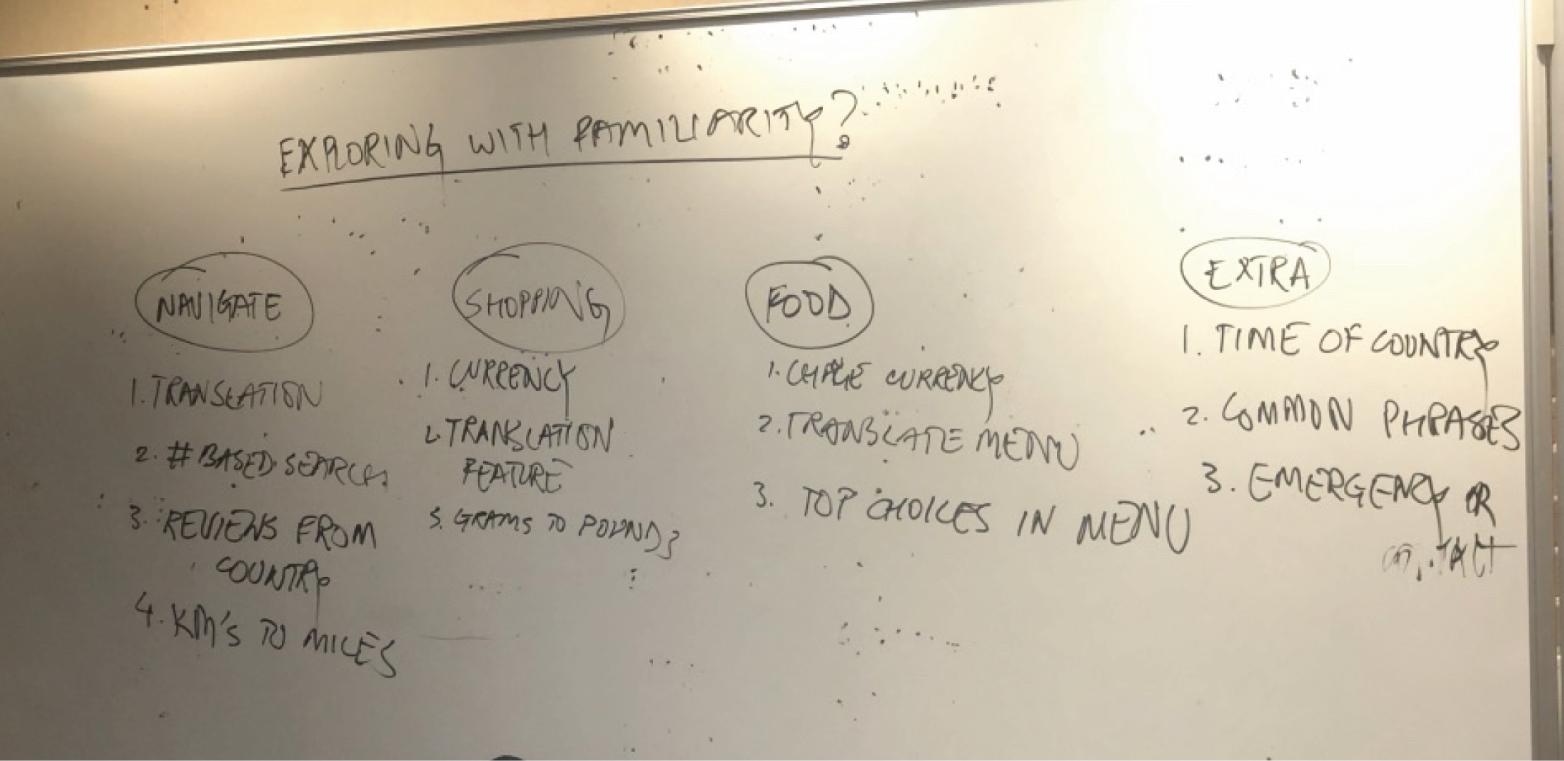 EXPLORING WITH FAMILIARITY?
NAVIGATE
1. TRANSLATION
2. #BASED SEARCH
3. REVIEWS FROM
COUNTRY
4. KM'S TO MILES
SHOPPING
1. CURRENCY
2. TRANSLATION
FEATURE
3. GRAMS TO POUNDS
FOOD
1. CURRENCY
2. TRANSLATE MENU
3. TOP CHOICES IN MENU
EXTRA
1. TIME OF COUNTRY
2. COMMON PHRASES
3. EMERGENCY OR
CONTACT